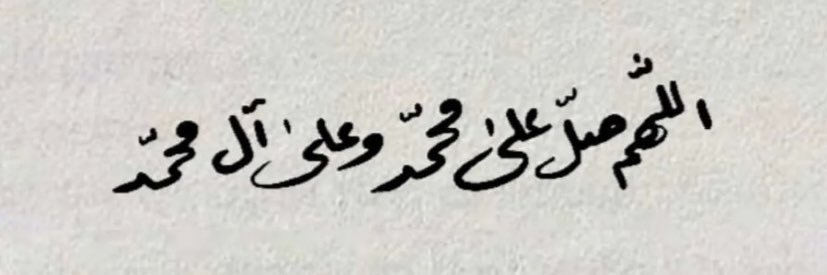 اللّٰهم صلّ علىٰ محمّد وعلىٰ آل محمّد